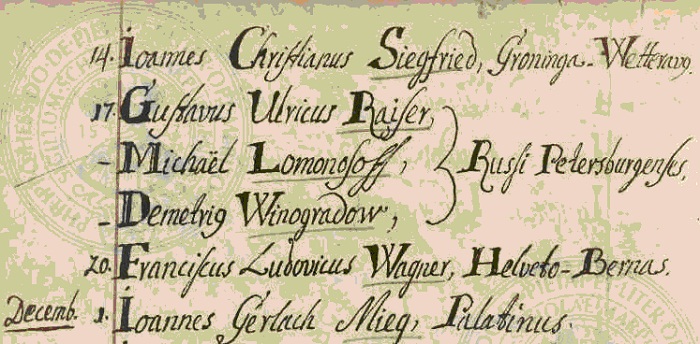 14. Ioannes Christianus Siegfried, Groninga-Wetteravo.
17. Gustavus Ulricus Raiser,
– Michaël Lomonosoff, Russi Petersburgenses,
– Demetrig Winogradow,
20. Franciscus Ludovicus Wagner, Helveto-Bernas.
Decemb. 1. Ioannes Gerlach Mieg, Palatinus.